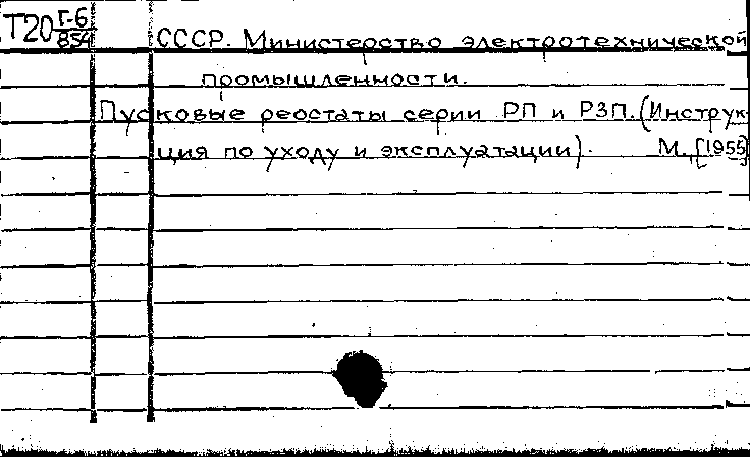 Т20 Г-6
854
СССР. Министерство электротехнической
промышленности.
Пусковые реостаты серии РП и РЗП. (Инструк-
ция по уходу и эксплуатации). М., [1955]